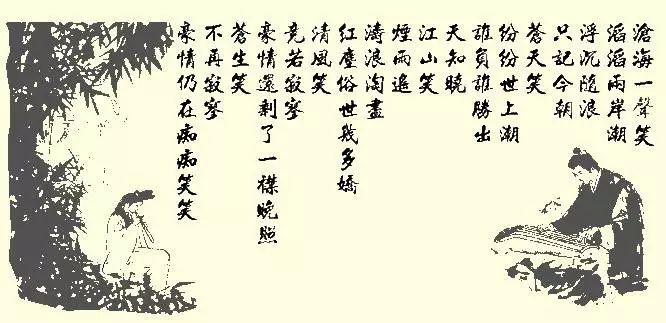 滄海一聲笑
滔滔兩岸潮
浮沉隨浪
只記今朝
蒼天笑
紛紛世上潮
誰負誰勝出
天知曉
江山笑
煙雨遙
濤浪淘盡
紅塵俗世幾多嬌
清風笑
竟若寂寥
豪情還剩了一襟晚照
蒼生笑
不再寂寥
豪情仍在痴痴笑笑